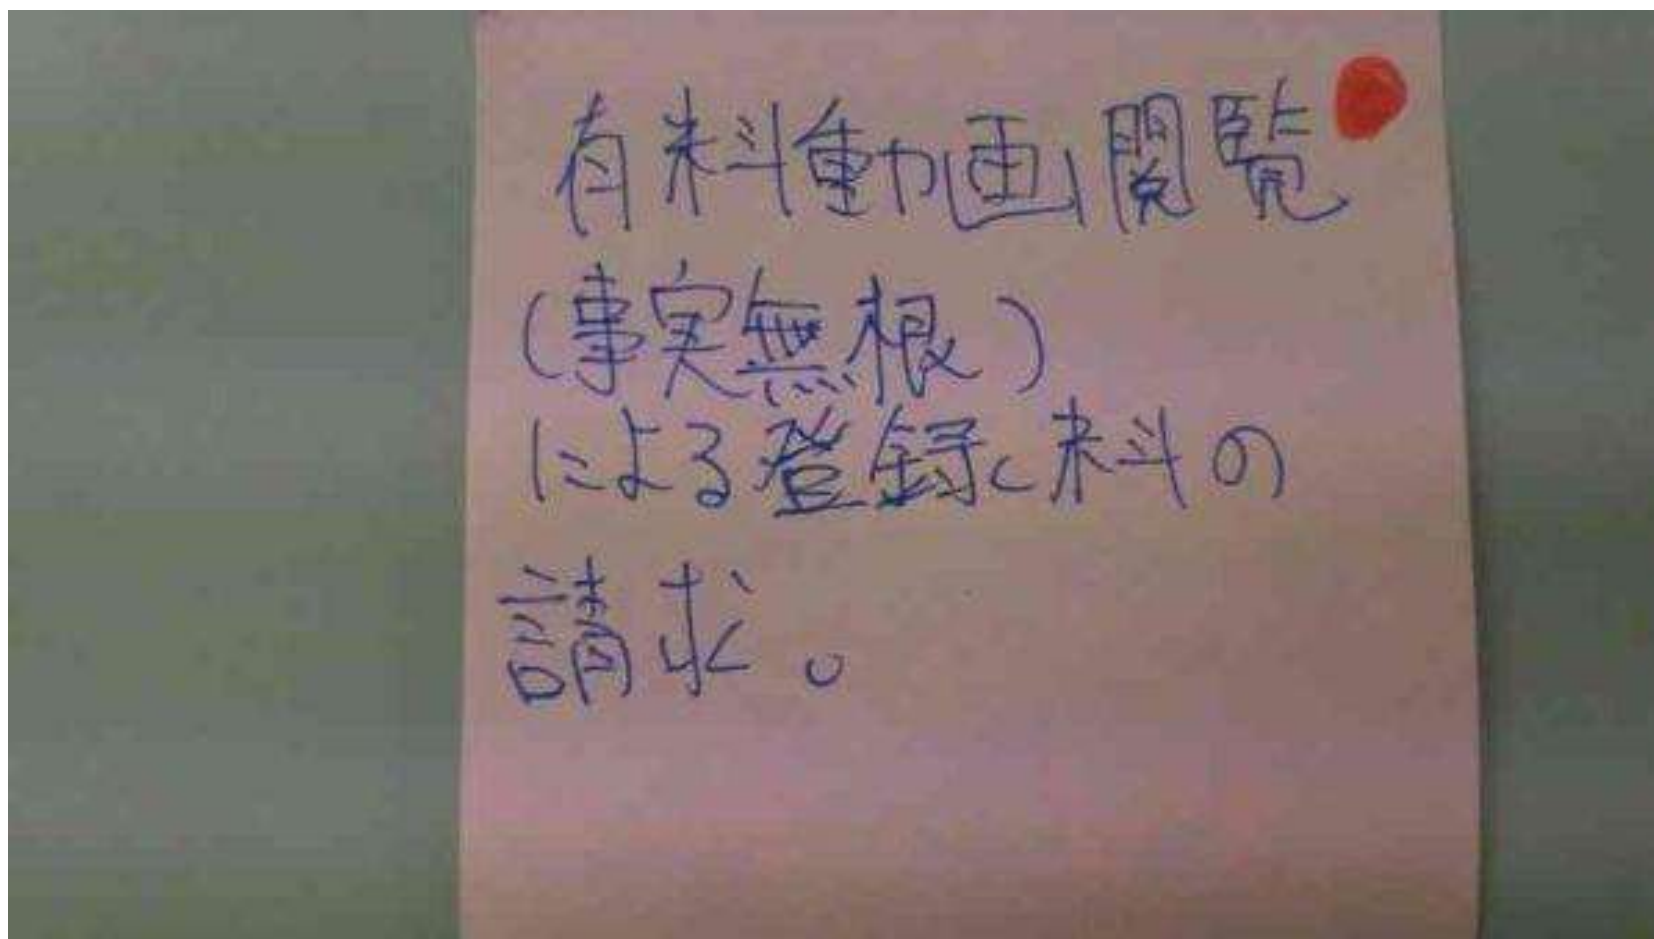 有料動画閲覧
(事実無根)
による登録料の
請求。